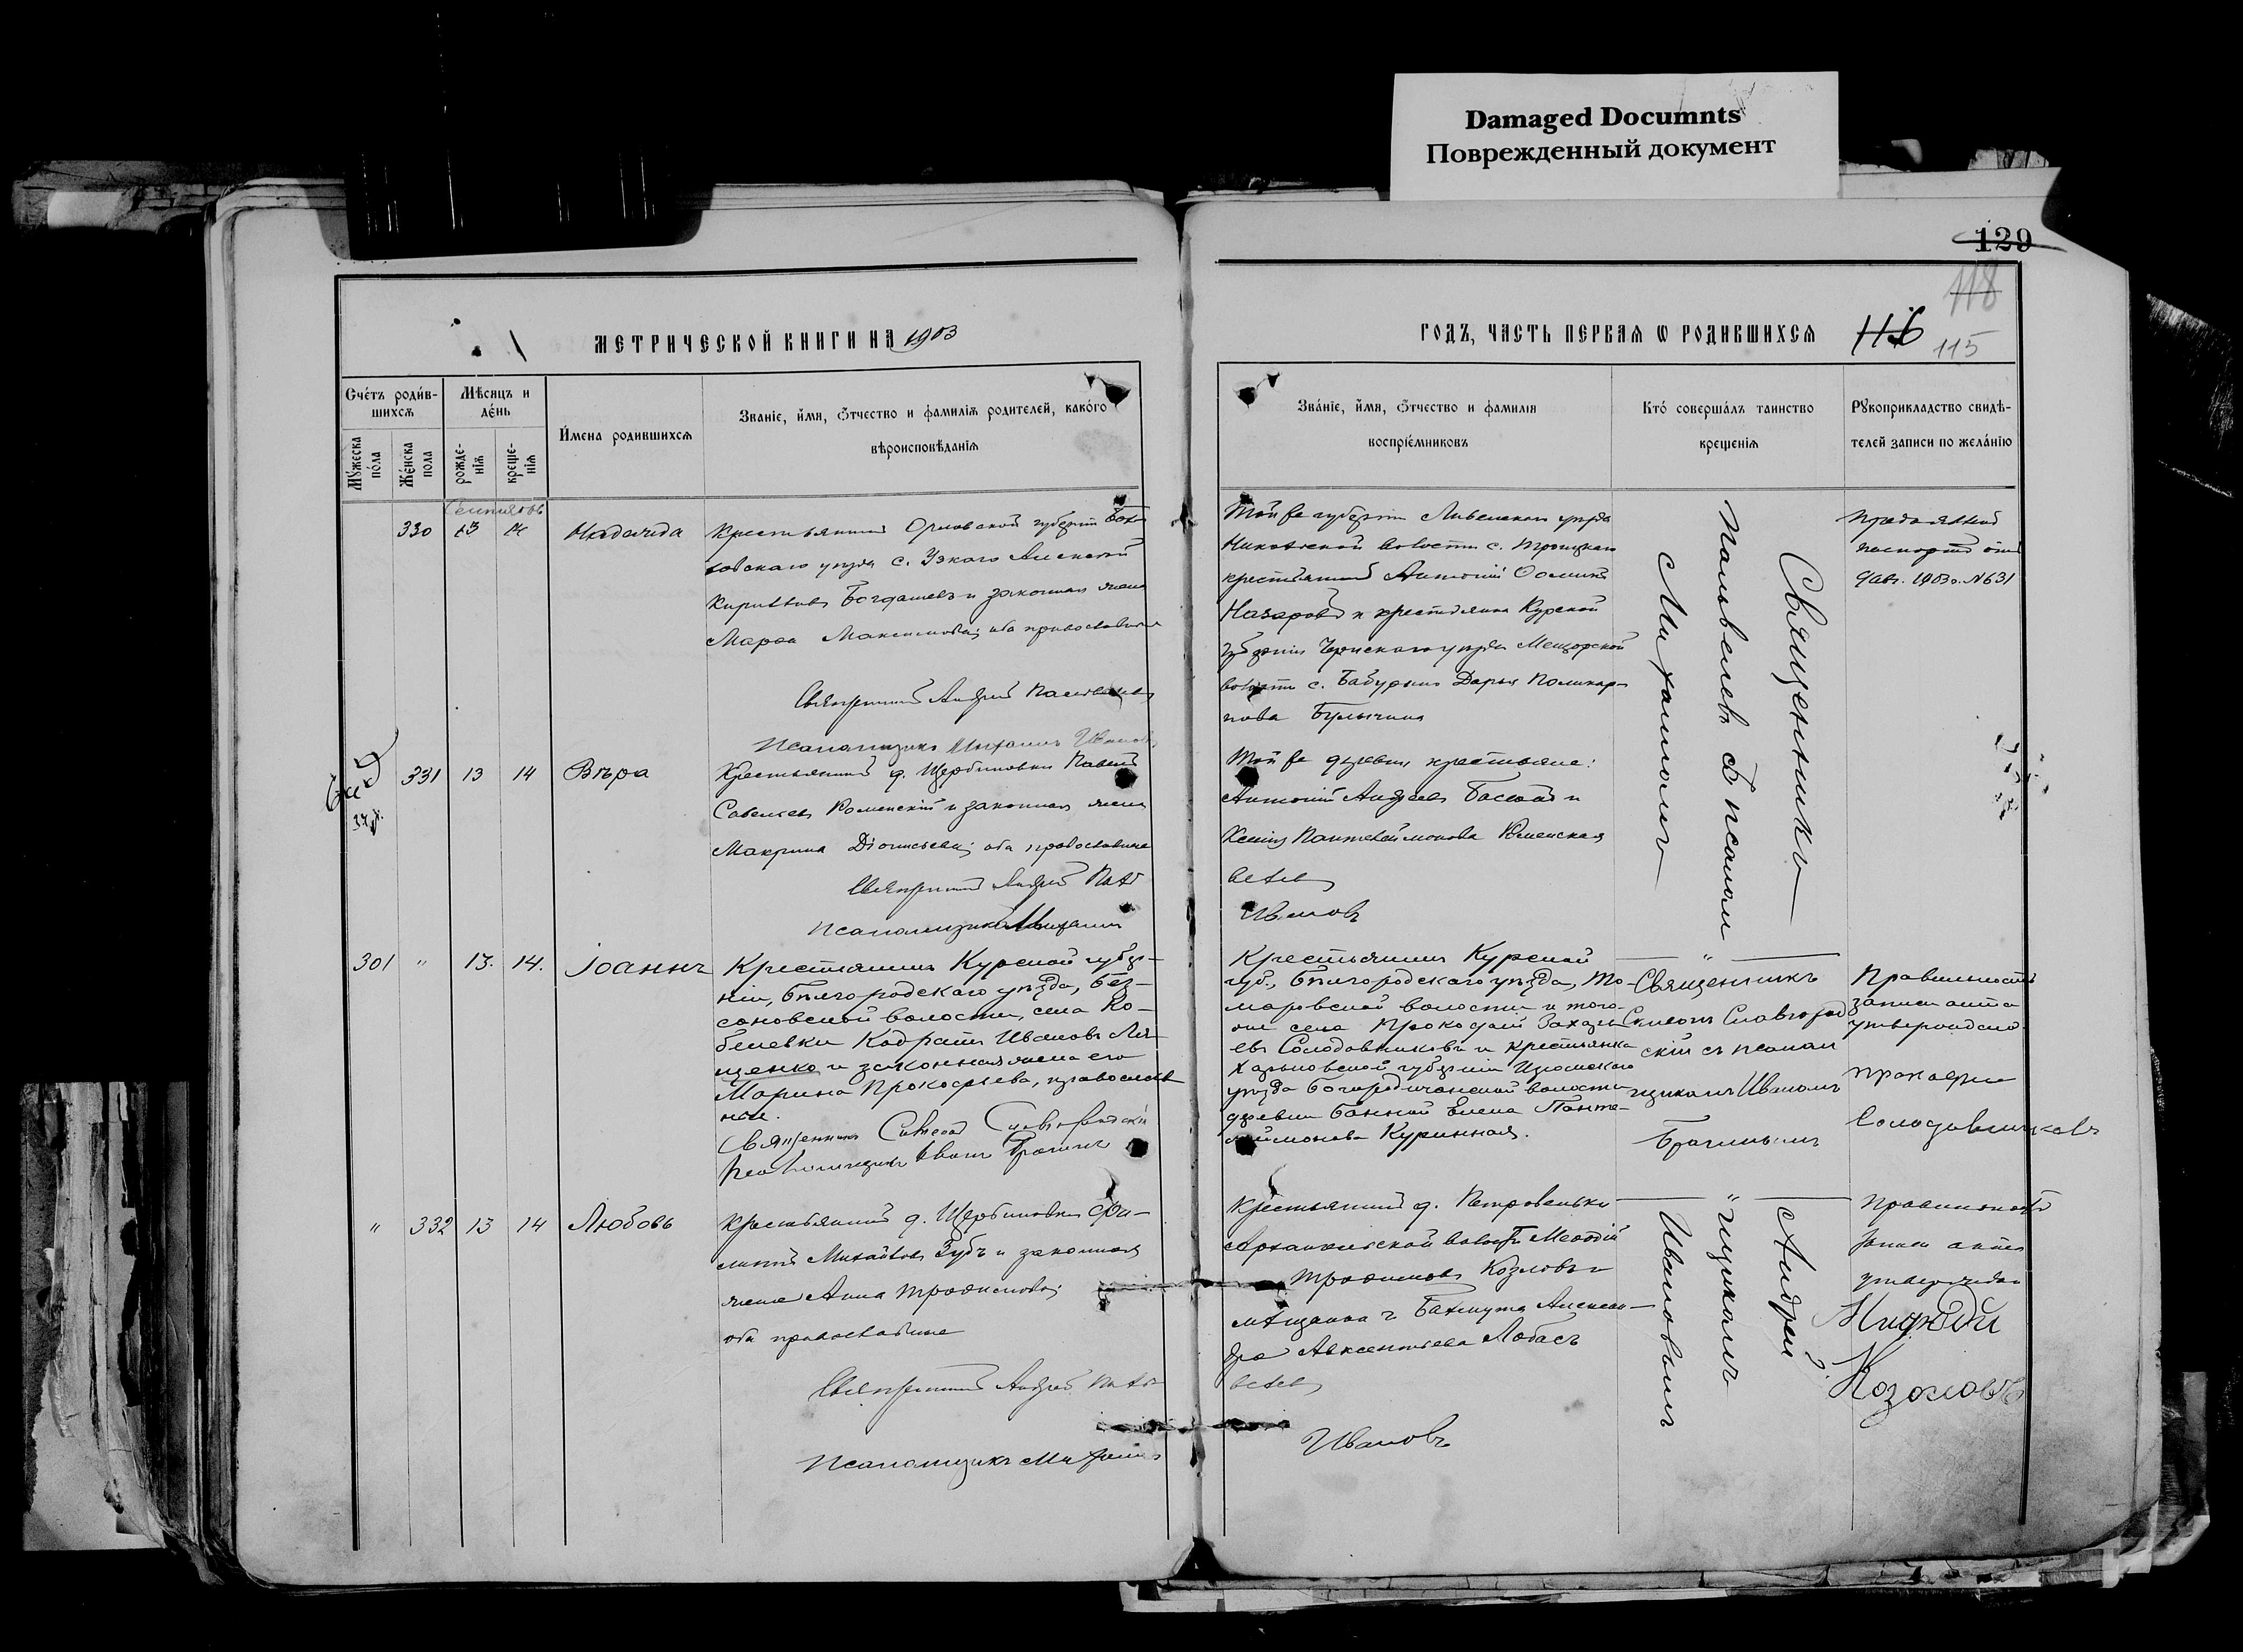 Damaged Documnts
Поврежденный документ
129
118
МЕТРИЧЕСКОЙ КНИГИ НА 1903
ГОДЪ, ЧАСТЬ ПЕРВАЯ Ѡ РОДИВШИХСЯ
116
115
Счетъ родив-
шихся
Мѣсяцъ и
день
Мужеска
пола
Женска
пола
рожде-
нія
креще-
нія
Имена родившихся
Званіе, имя, отчество и фамилія родителей, какого
вѣроисповѣданія
Званіе, имя, отчество и фамилія
воспріемниковъ
Кто совершалъ таинство
крещенія
Рукоприкладство свидѣ-
телей записи по желанію
Сентябрь
330 13 14 Надежда
Крестьянинъ Орловской губерніи Бол-
ховскаго уѣзда с. Узкаго Алексѣй
Кирилловъ Богдашевъ и законная жена
Марѳа Максимова; оба православные
Священникъ Андрей
Псаломщикъ Михаилъ Ивановъ
Той же губерніи Ливенскаго уѣзда
волости с. Троицкаго
крестьянинъ Антоній
Назаровъ и крестьянка Курской
губерніи уѣзда
волости с. Бабурина Дарья Поликар-
пова Булычина
Священникъ
съ псалом
Михаиломъ
паспортъ отъ
1903 г. № 631
331 13 14 Вѣра
Крестьянинъ д. Щербиновки Павелъ
Савельевъ Роменскій и законная жена
Макрина Діонисьева; оба православные
Священникъ Андрей
Псаломщикъ Михаилъ
Той же деревни крестьяне:
Антоній Андреевъ и
Ксенія Пантелеймонова Роменская
Ивановъ
301 " 13. 14. Іоаннъ
Крестьянинъ Курской губер-
ніи, Бѣлгородскаго уѣзда, Без-
соновской волости, села Ко-
белевки Кодратъ Ивановъ Ля-
щенко и законная жена его
Марина Прокофьева, православ-
ные.
Священникъ Симеонъ Славгородскій
Псаломщикъ Иванъ Брагинъ
Крестьянинъ Курской
губ., Бѣлгородскаго уѣзда, То-
маровской волости и того-
же села Прокофій Захарь-
евъ Солодовниковъ и крестьянка
Харьковской губерніи Изюмскаго
уѣзда Богородичанской волости
деревни Банной Елена Панте-
леймонова Куринная.
"
Священникъ
Симеонъ Славгород-
скій съ псалом
щикомъ Иваномъ
Брагинымъ
Правильность
записи акта
утверждаю
Прокофій
Солодовниковъ
" 332 13 14 Любовь
Крестьянинъ д. Щербиновки Фи-
липпъ Михайловъ Зубъ и законная
жена Анна Трофимова;
оба православные
Священникъ Андрей
Псаломщикъ Михаилъ
Крестьянинъ д. Петровеньки
Архангельской волости Меѳодій
Трофимовъ Козловъ и
мѣщанка г. Бахмута Алексан-
дра Авксентьева Лобасъ
Ивановъ
"
Андрей
щикомъ
Ивановымъ
Правильность
записи акта
утверждаю
Козловъ